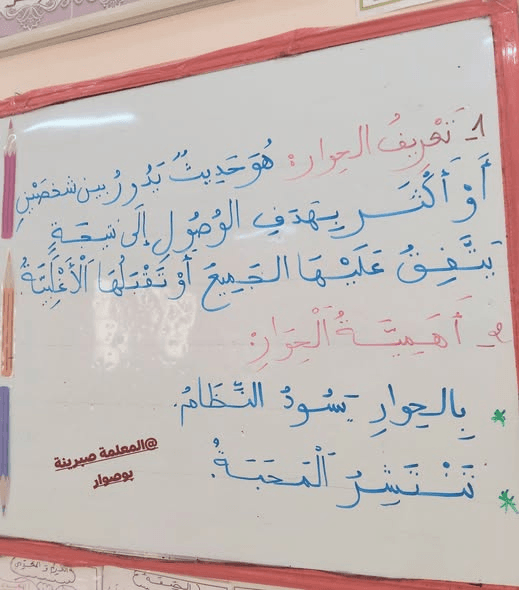 1- تَعْرِيفُ الحِوار: هُوَ حَدِيثٌ يَدُورُ بين شخصَيْنِ
أَوْ أَكْثَر بِهَدَفِ الوُصُولِ إِلَى نتيجَةٍ
يَتَّفِقُ عَلَيْهَا الجَمِيعُ أَوْ تَقْبَلُهَا الْأَغْلَبِيَّةُ.
2- أَهَمِيَّةُ الْحِوَارِ:
* بِالحِوارِ يَسُودُ النِّظَامُ.
* تَنْتَشِرُ الْمَحَبَةُ.
@المعلمة صبرينة
بوصوار